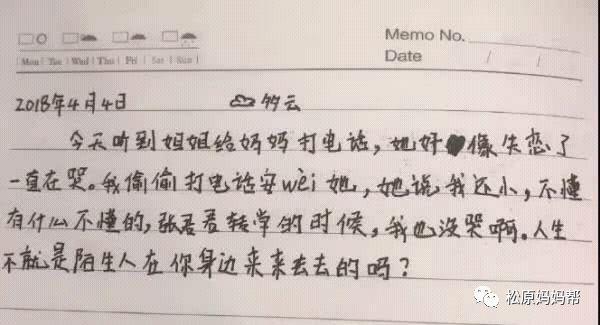 Memo No.
Date / /
Mon Tue Wed Thu Fri Sat Sun
2018年4月4日 多云
今天听到姐姐给妈妈打电话,她好像失恋了
一直在哭。我偷偷打电话安wèi她,她说我还小,不懂
有什么不懂的,张君君转学的时候,我也没哭啊。人生
不就是陌生人在你身边来来去去的吗?
松原妈妈帮